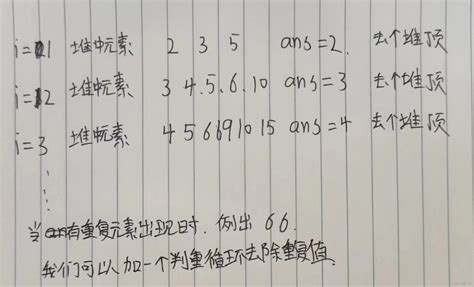 i=1 堆中元素 2 3 5 ans=2. 去个堆顶
i=2 堆中元素 3 4.5.6.10 ans=3 去个堆顶
i=3 堆中元素 4 5 6 6 9 10 15 ans=4 去个堆顶
当有重复元素出现时. 例出 66.
我们可以加一个判重循环去除重复值.